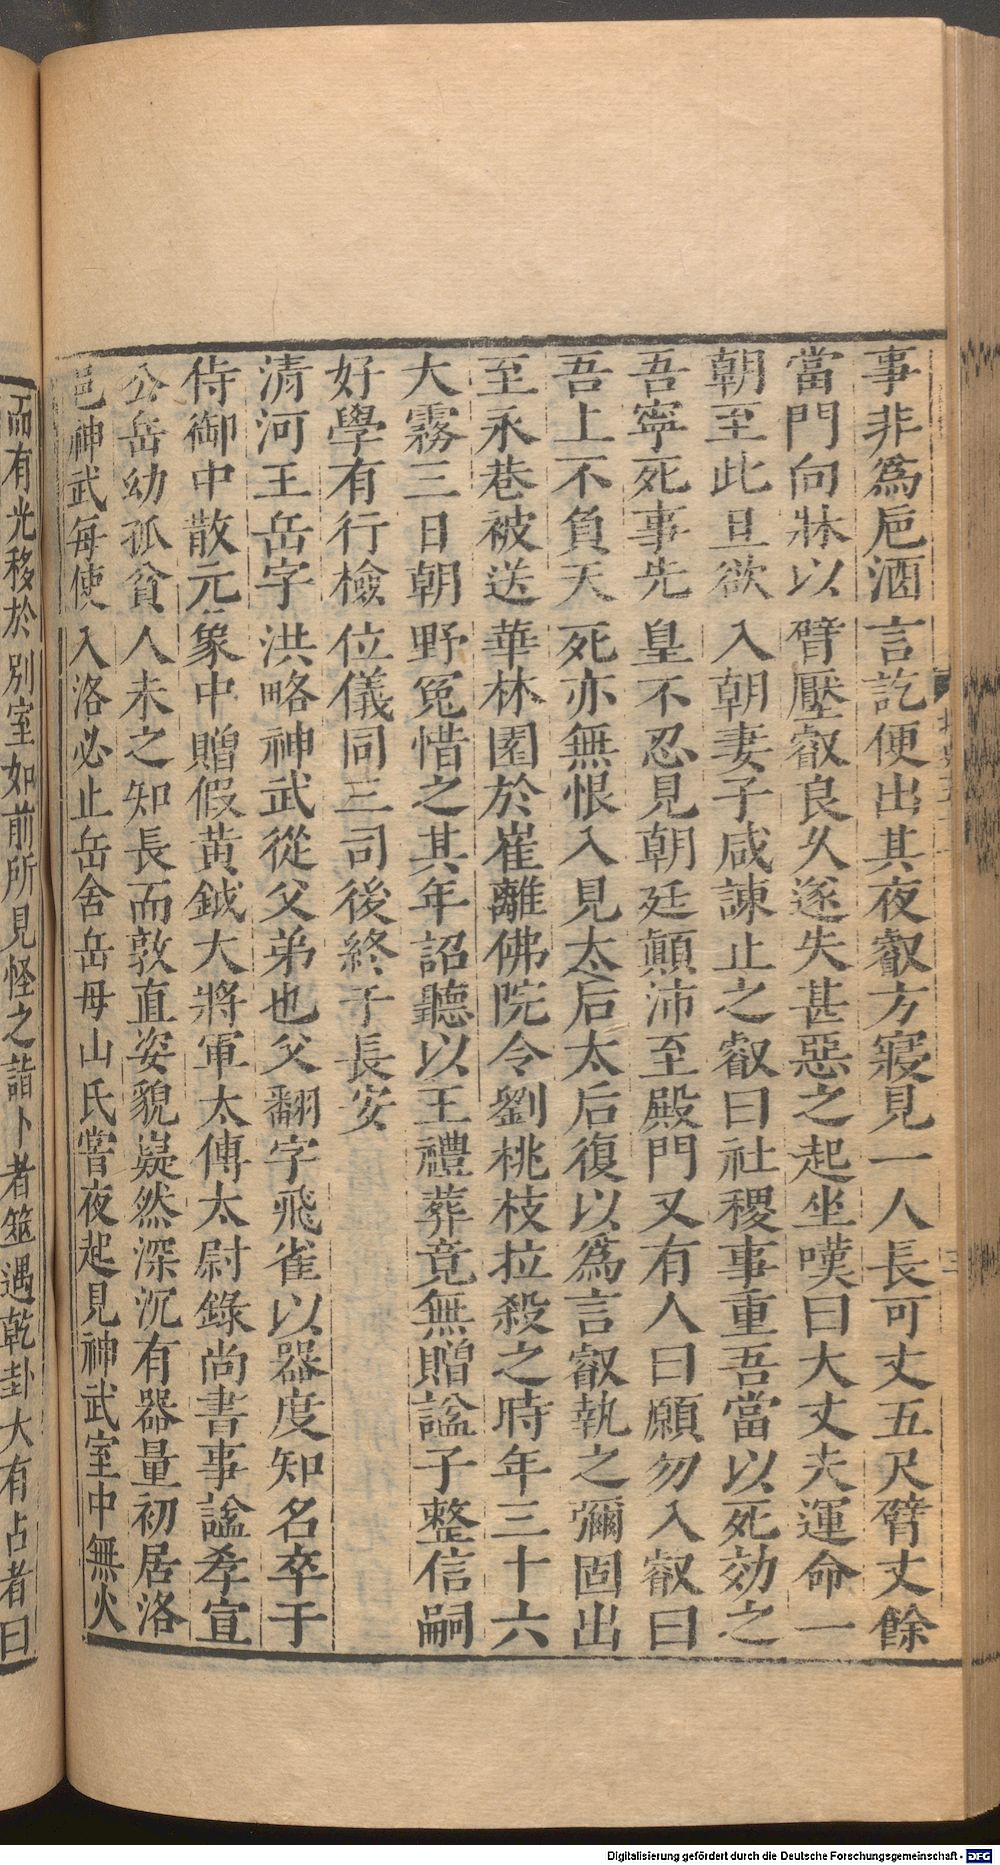 事非爲巵酒言訖便出其夜叡方寢見一人長可丈五尺臂丈餘
當門向牀以臂壓叡良久遂失甚惡之起坐嘆曰大丈夫運命一
朝至此旦欲入朝妻子咸諫止之叡曰社稷事重吾當以死効之
吾寧死事先皇不忍見朝廷顛沛至殿門又有人曰願勿入叡曰
吾上不負天死亦無恨入見太后太后復以爲言叡執之彌固出
至永巷被送華林園於崔離佛院令劉桃枝拉殺之時年三十六
大霧三日朝野冤惜之其年詔聽以王禮葬竟無贈諡子整信嗣
好學有行檢位儀同三司後終于長安
清河王岳字洪略神武從父弟也父翻字飛雀以器度知名卒于
侍御中散元象中贈假黃鉞大將軍太傅太尉錄尚書事諡孝宣
公岳幼孤貧人未之知長而敦直姿貌嶷然深沉有器量初居洛
邑神武每使入洛必止岳舍岳母山氏嘗夜起見神武室中無火
而有光移於別室如前所見怪之詣卜者筮遇乾卦大有占者曰
Digitalisierung gefördert durch die Deutsche Forschungsgemeinschaft - DFG